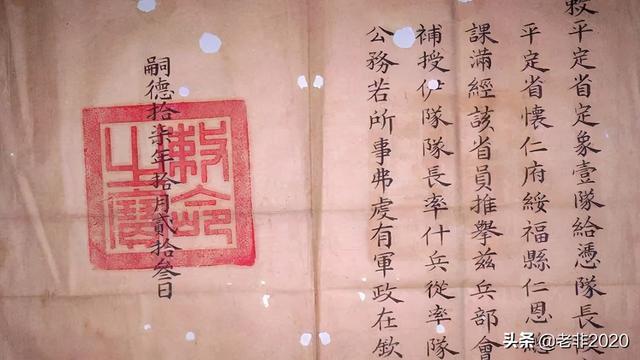 敕平定省定象壹隊給憑隊長
平定省懷仁府綏福縣仁恩
課滿經該省員推舉茲兵部會
補授伊隊隊長率什兵從率隊
公務若所事弗虔有軍政在欽
嗣德拾柒年拾月貳拾叁日
敕命之寶
头条 @老非2020